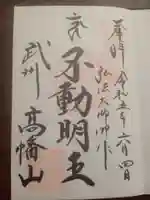 奉拝 令和五年二月四日
弘法大師御作
不動明王
武州 高幡山